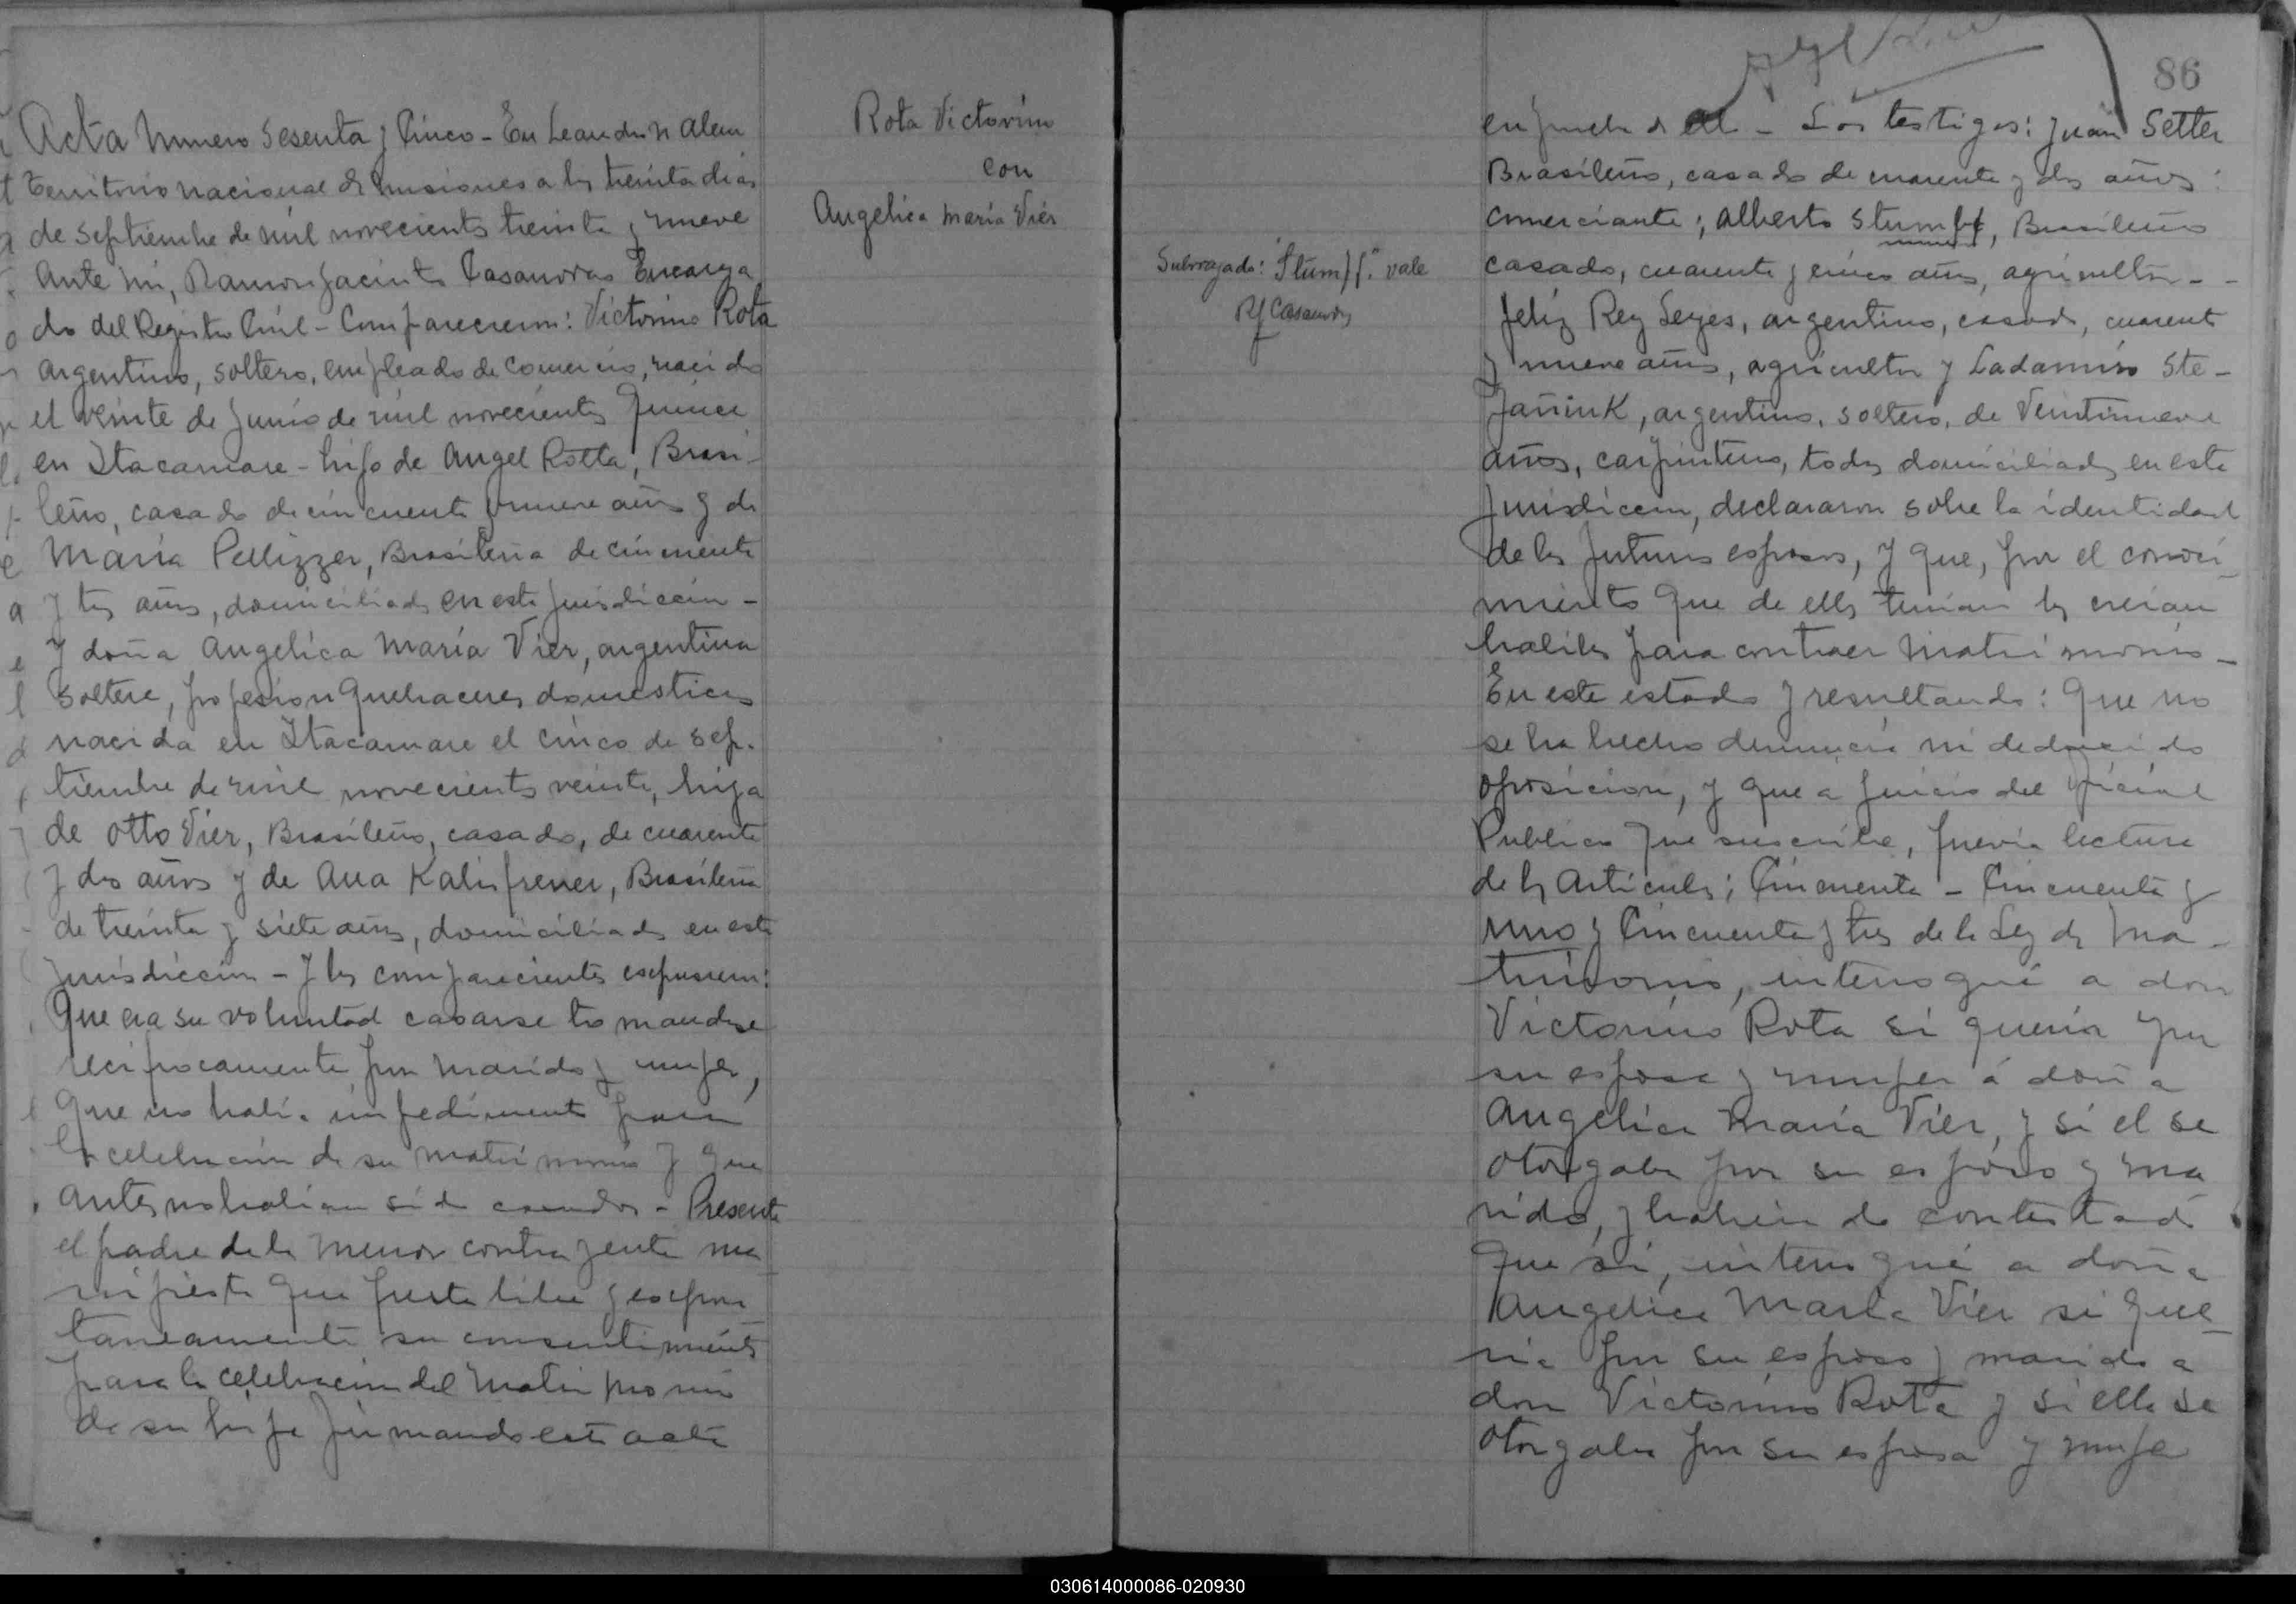 Acta Numero Sesenta y Cinco - En Leandro N Alem
territorio nacional de Misiones a los treinta dias
de Septiembre de mil novecientos treinta y nueve
Ante mi, Ramon Jacinto Casanovas Encarga
do del Registro Civil - Comparecieron: Victorino Rota
argentino, soltero, empleado de comercio, nacido
el veinte de Junio de mil novecientos quince
en Itacaruare - hijo de Angel Rotta, Brasi-
leño, casado de cincuenta y nueve años y de
Maria Pellizzer, Brasileña de cincuenta
y tres años, domiciliados en esta jurisdiccion -
Y doña Angelica Maria Vier, argentina
soltera, profesion quehaceres domesticos
nacida en Itacaruare el cinco de sep-
tiembre de mil novecientos veinte, hija
de Otto Vier, Brasileño, casado, de cuarenta
y dos años y de Ana Kalisfrener, Brasileña
de treinta y siete años, domiciliados en esta
jurisdiccion - Y los comparecientes expusieron:
Que era su voluntad casarse tomandose
reciprocamente por marido y mujer,
Que no habia impedimento para
la celebracion de su matrimonio y que
antes no habian sido casados - Presente
el padre de la menor contrayente ma
nifiesta que presta libre y expon
taneamente su consentimiento
para la celebracion del matrimonio
de su hija firmando esta acta
Rota Victorino
con
Angelica Maria Vier
86
Subrrayado: "Stumpf." vale
RJCasanovas
en prueba de ello - Los testigos: Juan Setter
Brasileño, casado de cuarenta y dos años:
comerciante; Alberto Stumpf, Brasileño
casado, cuarenta y cinco años, agricultor - -
Feliz Rey Leyes, argentino, casado, cuarenta
y nueve años, agricultor y Ladamiro Ste-
fañiuk, argentino, soltero, de Veintinueve
años, carpintero, todos domiciliados en esta
Jurisdiccion, declararon sobre la identidad
de los futuros esposos, y que, por el conoci-
miento que de ellos tenian los creian
habiles para contraer Matrimonio -
En este estado y resultando: Que no
se ha hecho denuncia ni deducido
oposicion, y que a juicio del oficial
Publico que suscribe, previa lectura
de los Articulos; Cincuenta - Cincuenta y
uno y Cincuenta y tres de la Ley de Ma-
trimonio, interrogué a don
Victorino Rota si queria por
su esposa y mujer á doña
Angelica Maria Vier, y si el se
otorgaba por su esposo y ma
rido, y habiendo contestado
que si, interrogué a doña
Angelica Maria Vier si que-
ria por su esposo y marido a
don Victorino Rota y si ella se
otorgaba por su esposa y mujer
030614000086-020930